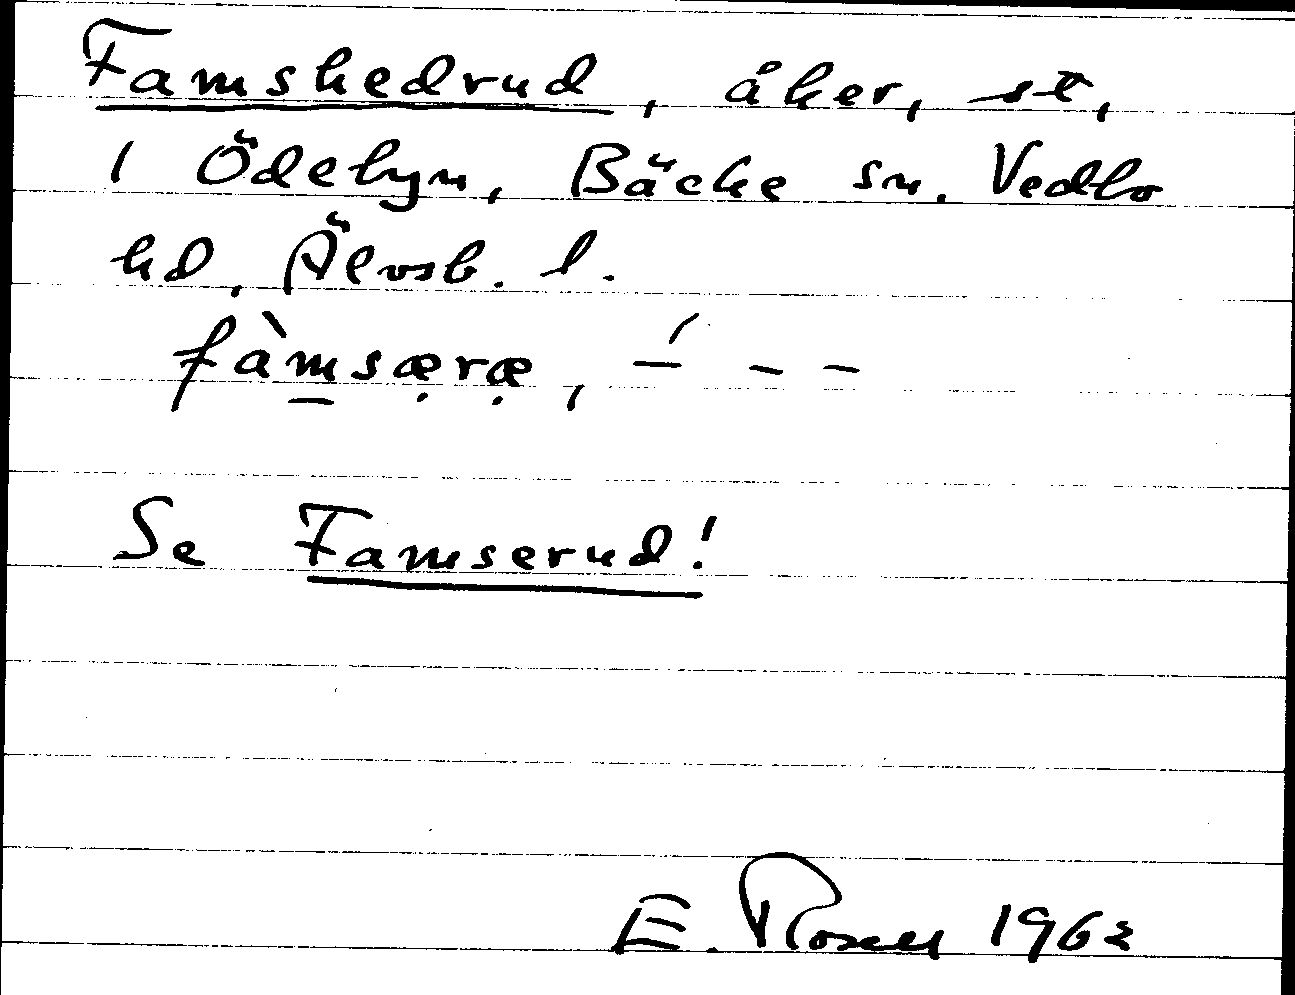 Famshedrud, åker, st,
i Ödebyn, Bäcke sn. Vedbo
hd, Älvsb. l.
fàmsæ̣ræ̣, –́ – –
Se Famserud!
E. Rosell 1962